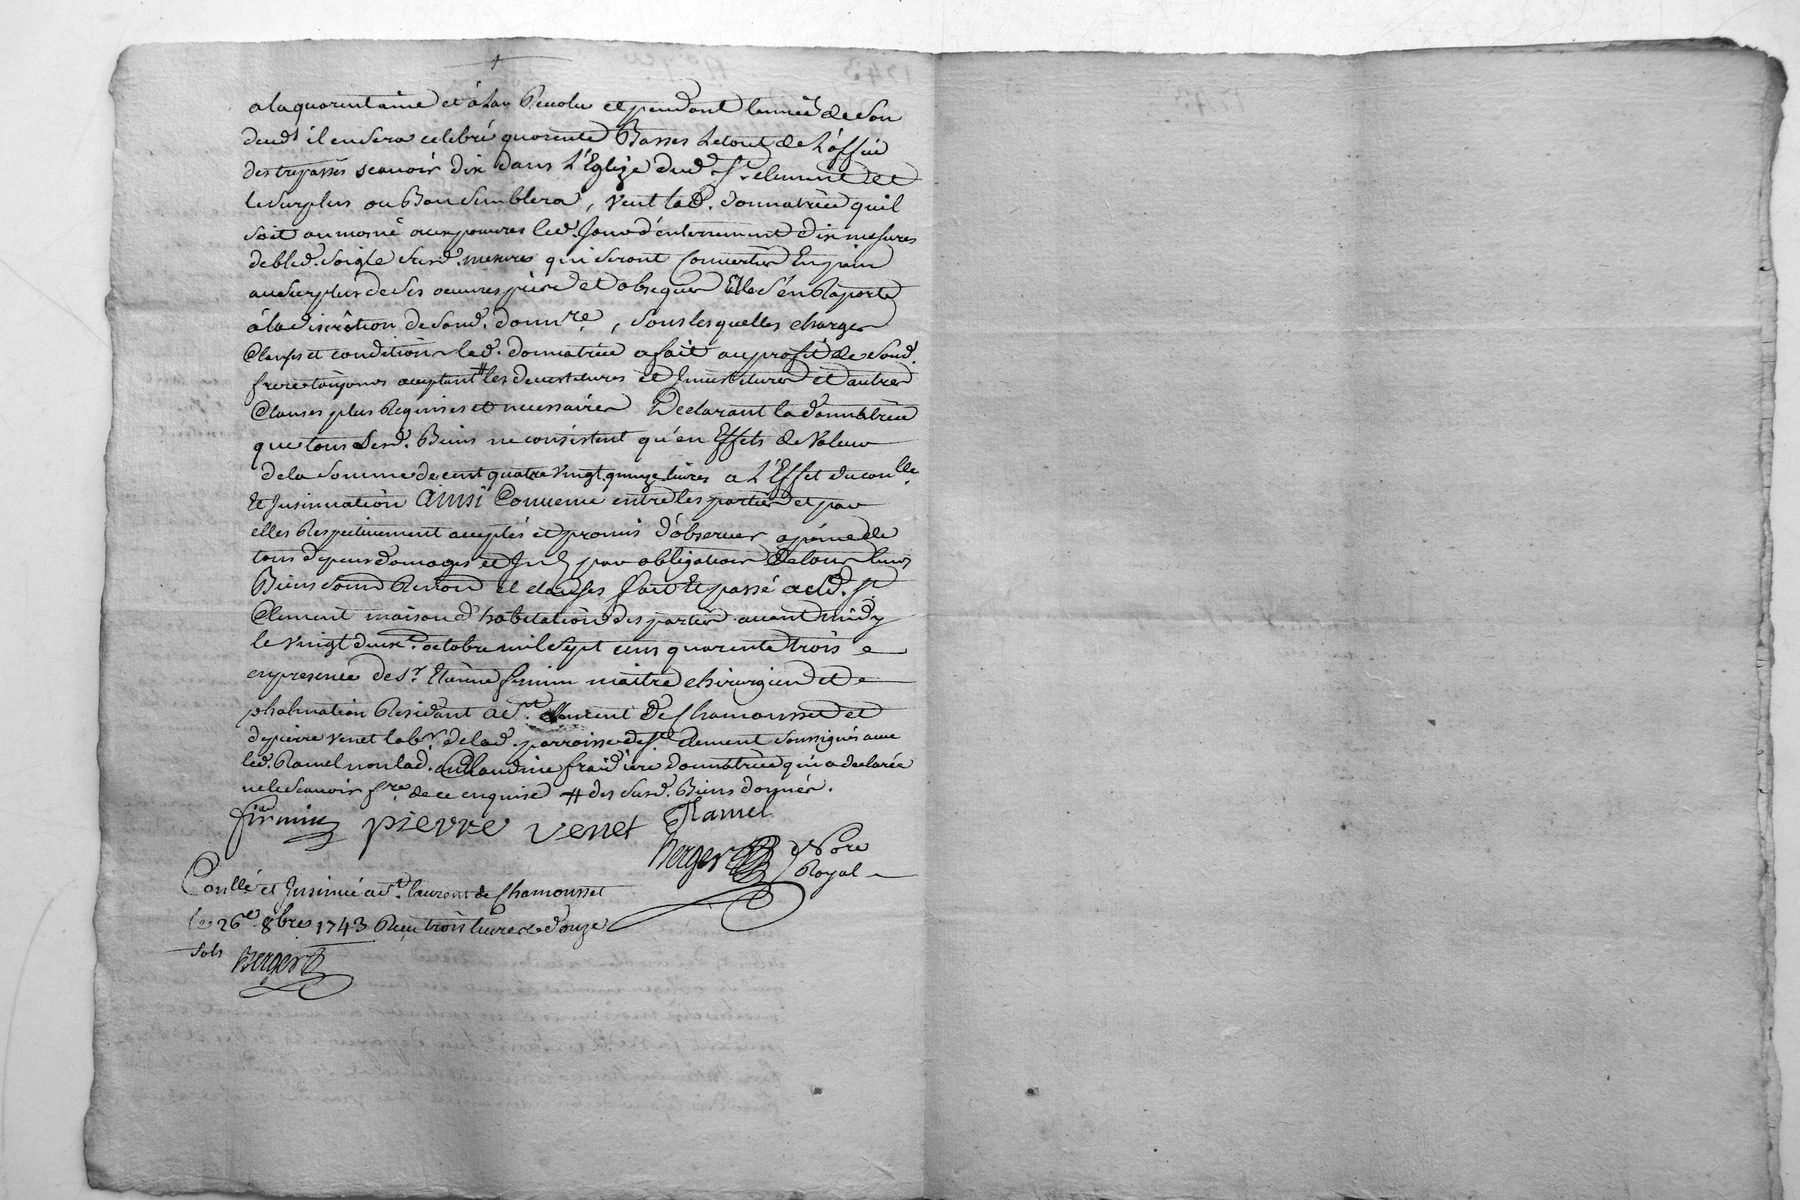 a la quarentaine et a l'an Revolu et pendant l'année de son
deuds il en sera celebré quarente Basses Le tout de L'office
des trepassés scavoir dix dans L'Eglize dud. St. clement et
le surplus ou Bon Semblera, veut lad. donnatrice quil
soit aumoné aux pauvres led. Jour d'enterrement dix mesures
de bled. soigle susd. mesures qui seront Converties En pain
au surplus de ses oeuvres pies et obseques Elle s'en Raporte
á la discrétion de sond. donnre, sous lesquelles charges
Clauses et conditions lad. donnatrice a fait au profit de sond.
frere toujours acceptant # les devestitures et Jnvestitures et autres
Clauses plus Requises et necessaires Declarant la donnatrice
que tous Sesd. Biens ne consistent qu'en Effets de Valeur
de la Somme de cent quatre vingt quinze livres a L'Effet du conlle.
Et Jnsinuation Ainsi Convenu entre les parties et par
elles Respectivement acceptés et promis d'observer a peine de
tous depens domages et Jnt. par obligation de tous leurs
Biens soumd Renond et clauses fait et passé aud. St.
Clement maison d'habitation des parties avant midy
le vingt deuxe. octobre mil Sept cens quarente trois
en presence de Sr. Etienne firmin maitre chirurgien et
Residant a St. laurent De Chamousset et
de pierre venet labr. de lad. parroisse de St. Clement soussignés avec
led. Ramel non lad. Claudine fraidiere donnatrice qui a declarée
ne le scavoir fre. de ce enquise # des susd. Biens donnés.
firmin pierre venet Ramel
Berger Nore
Royal
Conllé et Jnsinué a St. laurent de Chamousset
le 26e. 8bre 1743 Reçu trois livres douze
sols Berger